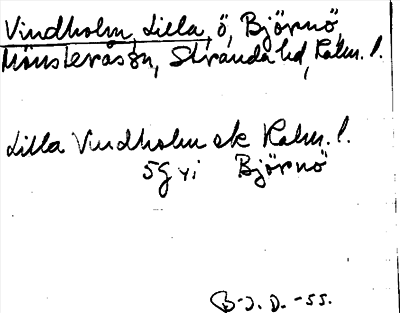 Vindholm, Lilla, ö, Björnö,
Mönsterås sn, Stranda hd, Kalm. l.
Lilla Vindholm ek Kalm. l.
5G vi Björnö
B-J. D. -55.